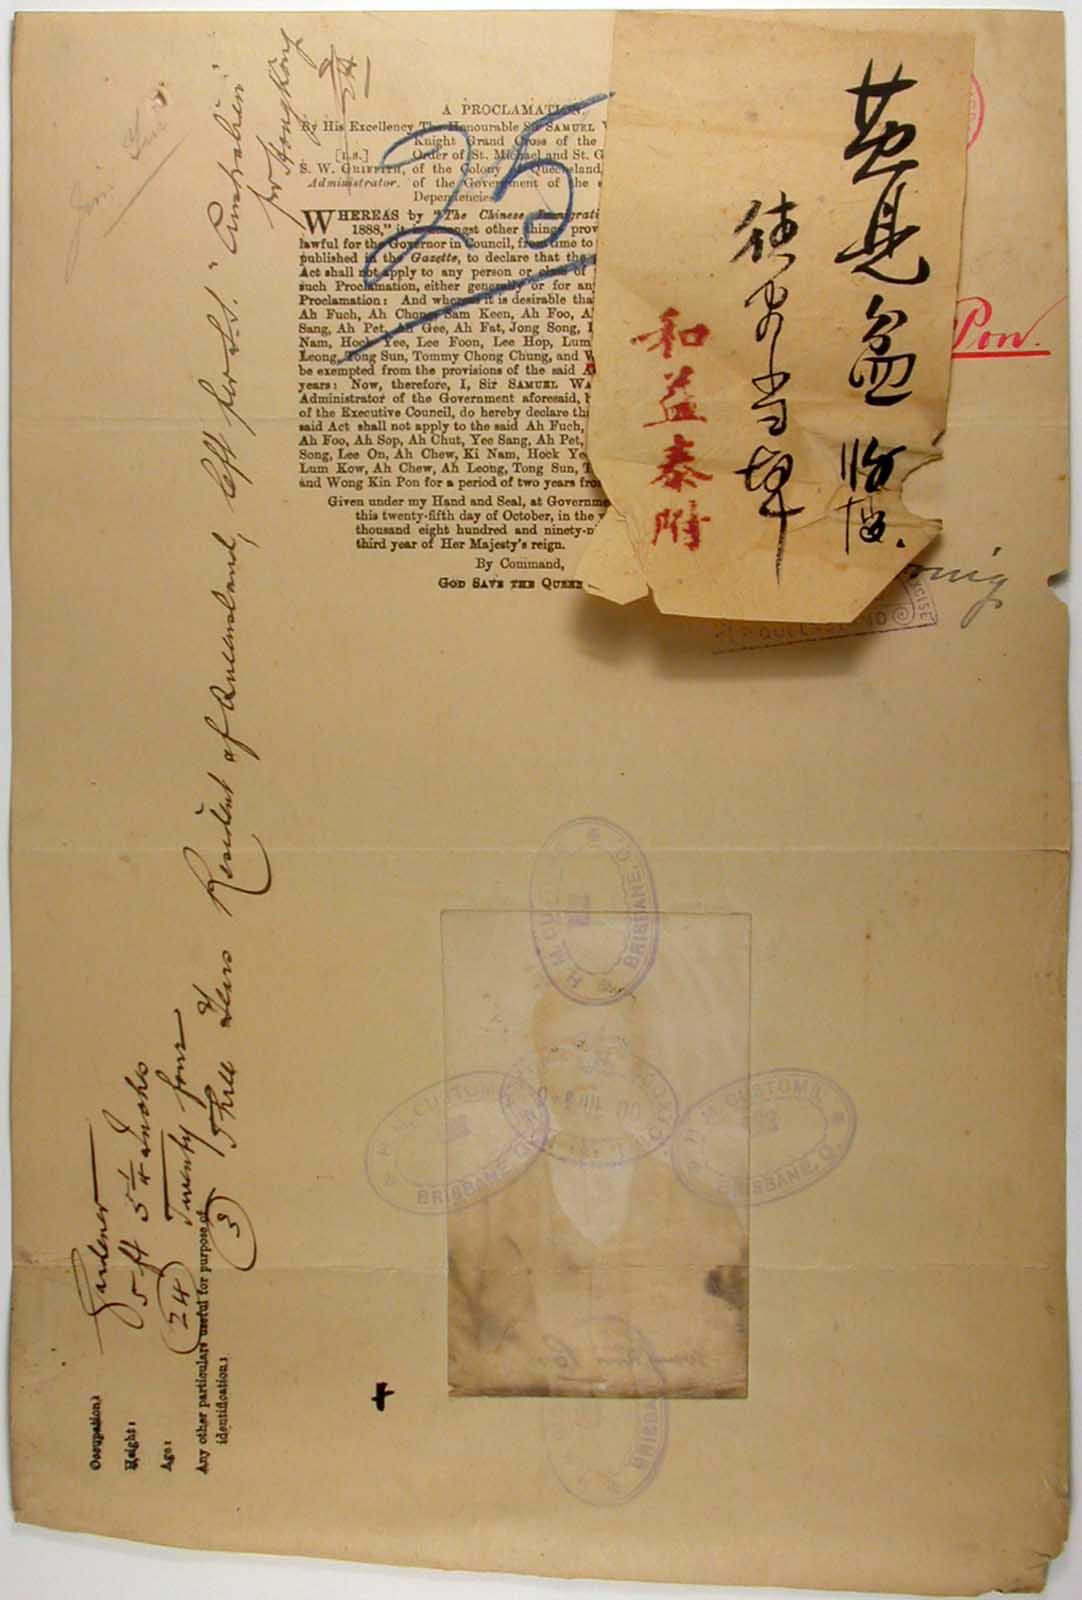 A PROCLAMATION.
By His Excellency The Honourable Sir SAMUEL W
Knight Grand Cross of the
[L.S.] Order of St. Michael and St. G
S. W. GRIFFITH, of the Colony of Queensland,
Administrator. of the Government of the s
Dependencies
WHEREAS by "The Chinese Immigrati
1888," it is amongst other things prov
lawful for the Governor in Council, from time to
published in the Gazette, to declare that the
Act shall not apply to any person or class of
such Proclamation, either generally or for an
Proclamation: And whereas it is desirable tha
Ah Fuch, Ah Chong, Sam Keen, Ah Foo, A
Sang, Ah Pet, Ah Gee, Ah Fat, Jong Song, L
Nam, Hock Yee, Lee Foon, Lee Hop, Lum
Leong, Tong Sun, Tommy Chong Chung, and W
be exempted from the provisions of the said A
years: Now, therefore, I, Sir SAMUEL WA
Administrator of the Government aforesaid,
of the Executive Council, do hereby declare th
said Act shall not apply to the said Ah Fuch,
Ah Foo, Ah Sop, Ah Chut, Yee Sang, Ah Pet,
Song, Lee On, Ah Chew, Ki Nam, Hock Ye
Lum Kow, Ah Chew, Ah Leong, Tong Sun, T
and Wong Kin Pon for a period of two years fro
Given under my Hand and Seal, at Governme
this twenty-fifth day of October, in the y
thousand eight hundred and ninety-n
third year of Her Majesty's reign.
By Command,
GOD SAVE THE QUEEN
25
Pon.
黄見盆
和益泰附
EXCISE
QUEENSLAND
Occupation: Gardener
Height: 5 ft 5 1/4 Inches
Age: (24) Twenty four
Any other particulars useful for purpose of
identification: (3) Three Years Resident of Queensland, left per S.S. "Australien"
for Hong Kong
H. M. CUSTOMS
BRISBANE. Q.
H. M. CUSTOMS
BRISBANE. Q.
H. M. CUSTOMS
BRISBANE. Q.
BRISBANE